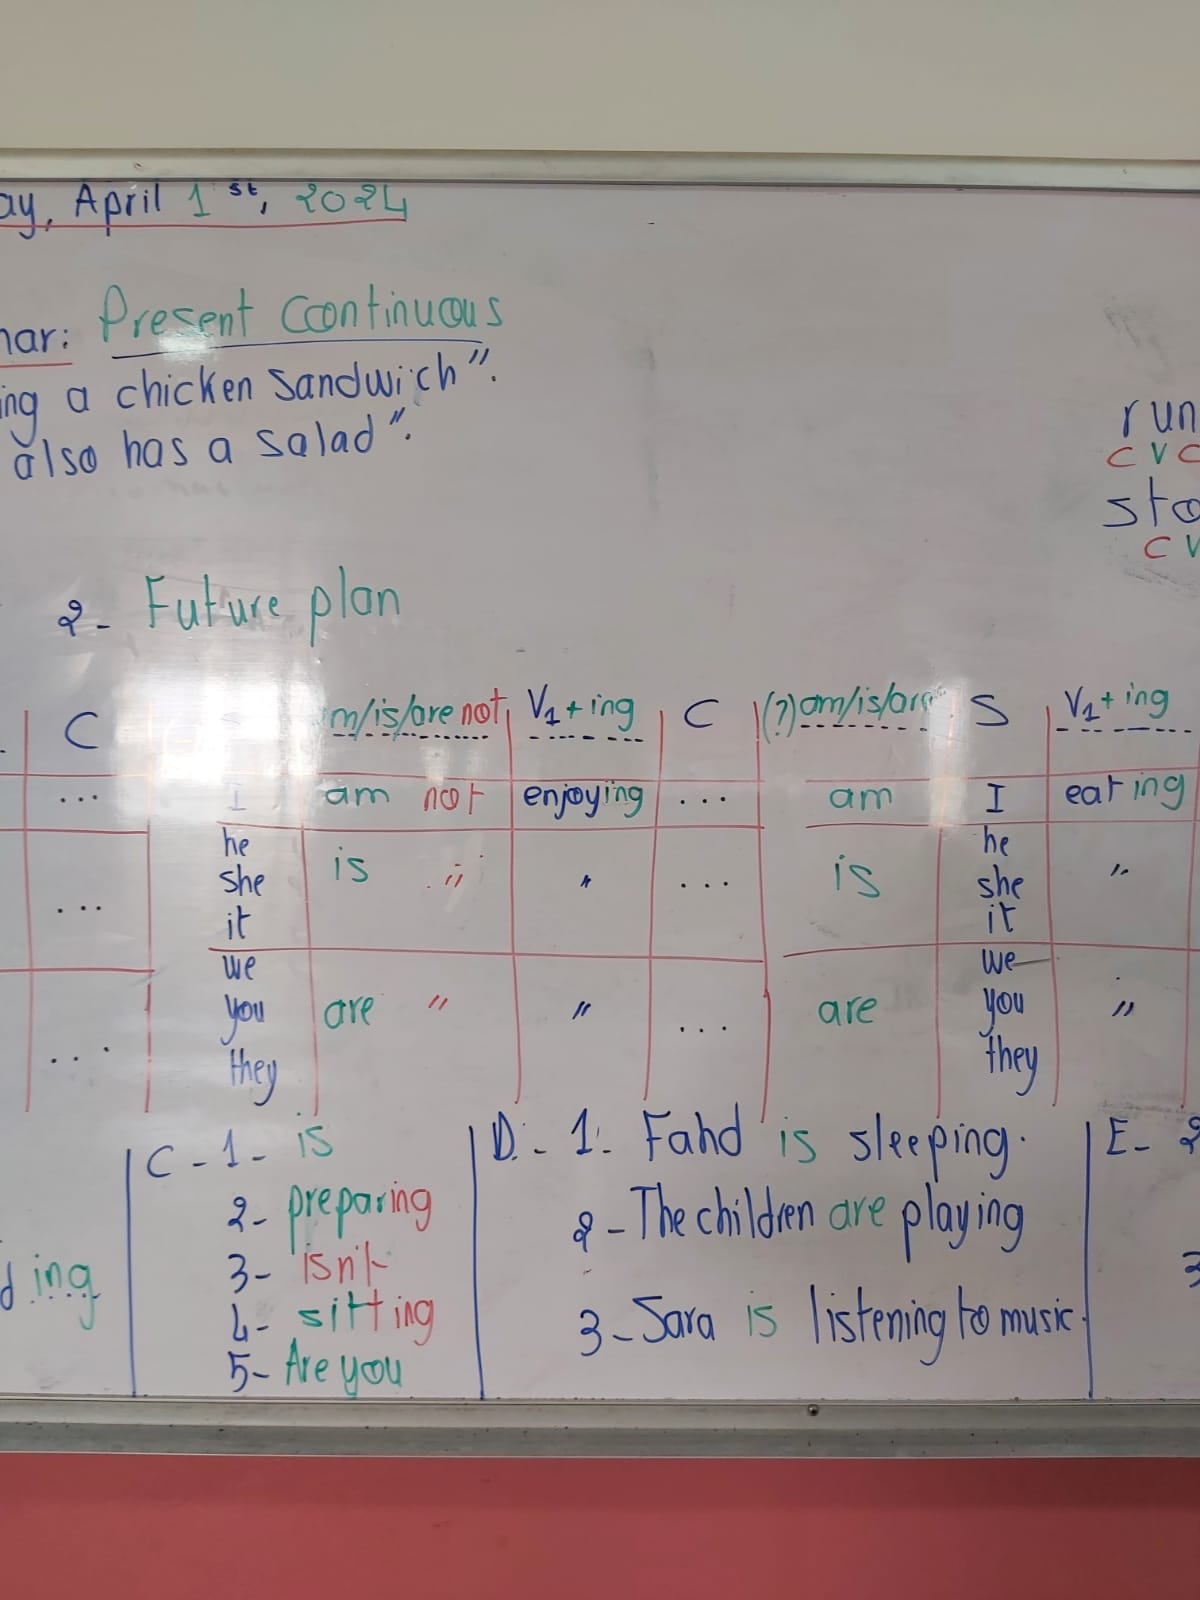 ay, April 1st, 2024
nar: Present Continuous
ing a chicken sandwich".
also has a salad".
run
C V C
sto
C V
2- Future plan
C m/is/are not V1+ing C (?) am/is/are S V1+ing
... I am not enjoying ... am I eating
he he
... she is " " ... is she "
it it
we we
... you are " " ... are you "
they they
ding
C-1- is
2- preparing
3- isn't
4- sitting
5- Are you
D.- 1. Fahd is sleeping.
2- The children are playing
3- Sara is listening to music.
E- 2
3